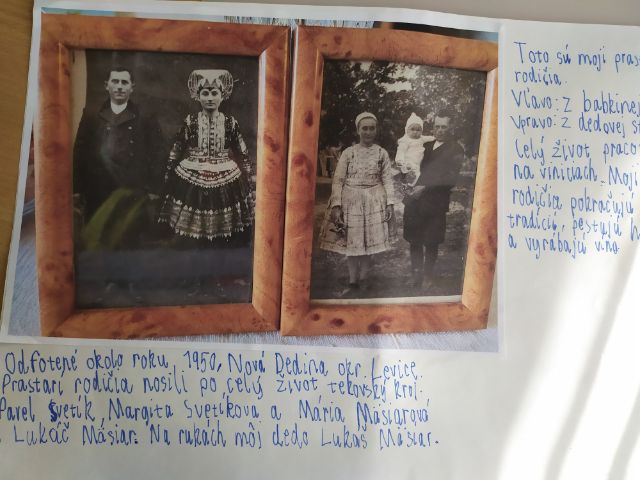 Toto sú moji
rodičia.
Vľavo: z babkinej
Vpravo: z dedovej
Celý život
na viniciach. Moji
rodičia pokračujú
tradícií, pestujú
a vyrábajú víno
Odfotené okolo roku 1950, Nová Dedina okr. Levice
Prastarí rodičia nosili po celý život tekovský kroj.
Pavel Svetík, Margita Svetíková a Mária Mäsiarová
Lukáč Mäsiar. Na rukách môj dedo Lukáš Mäsiar.